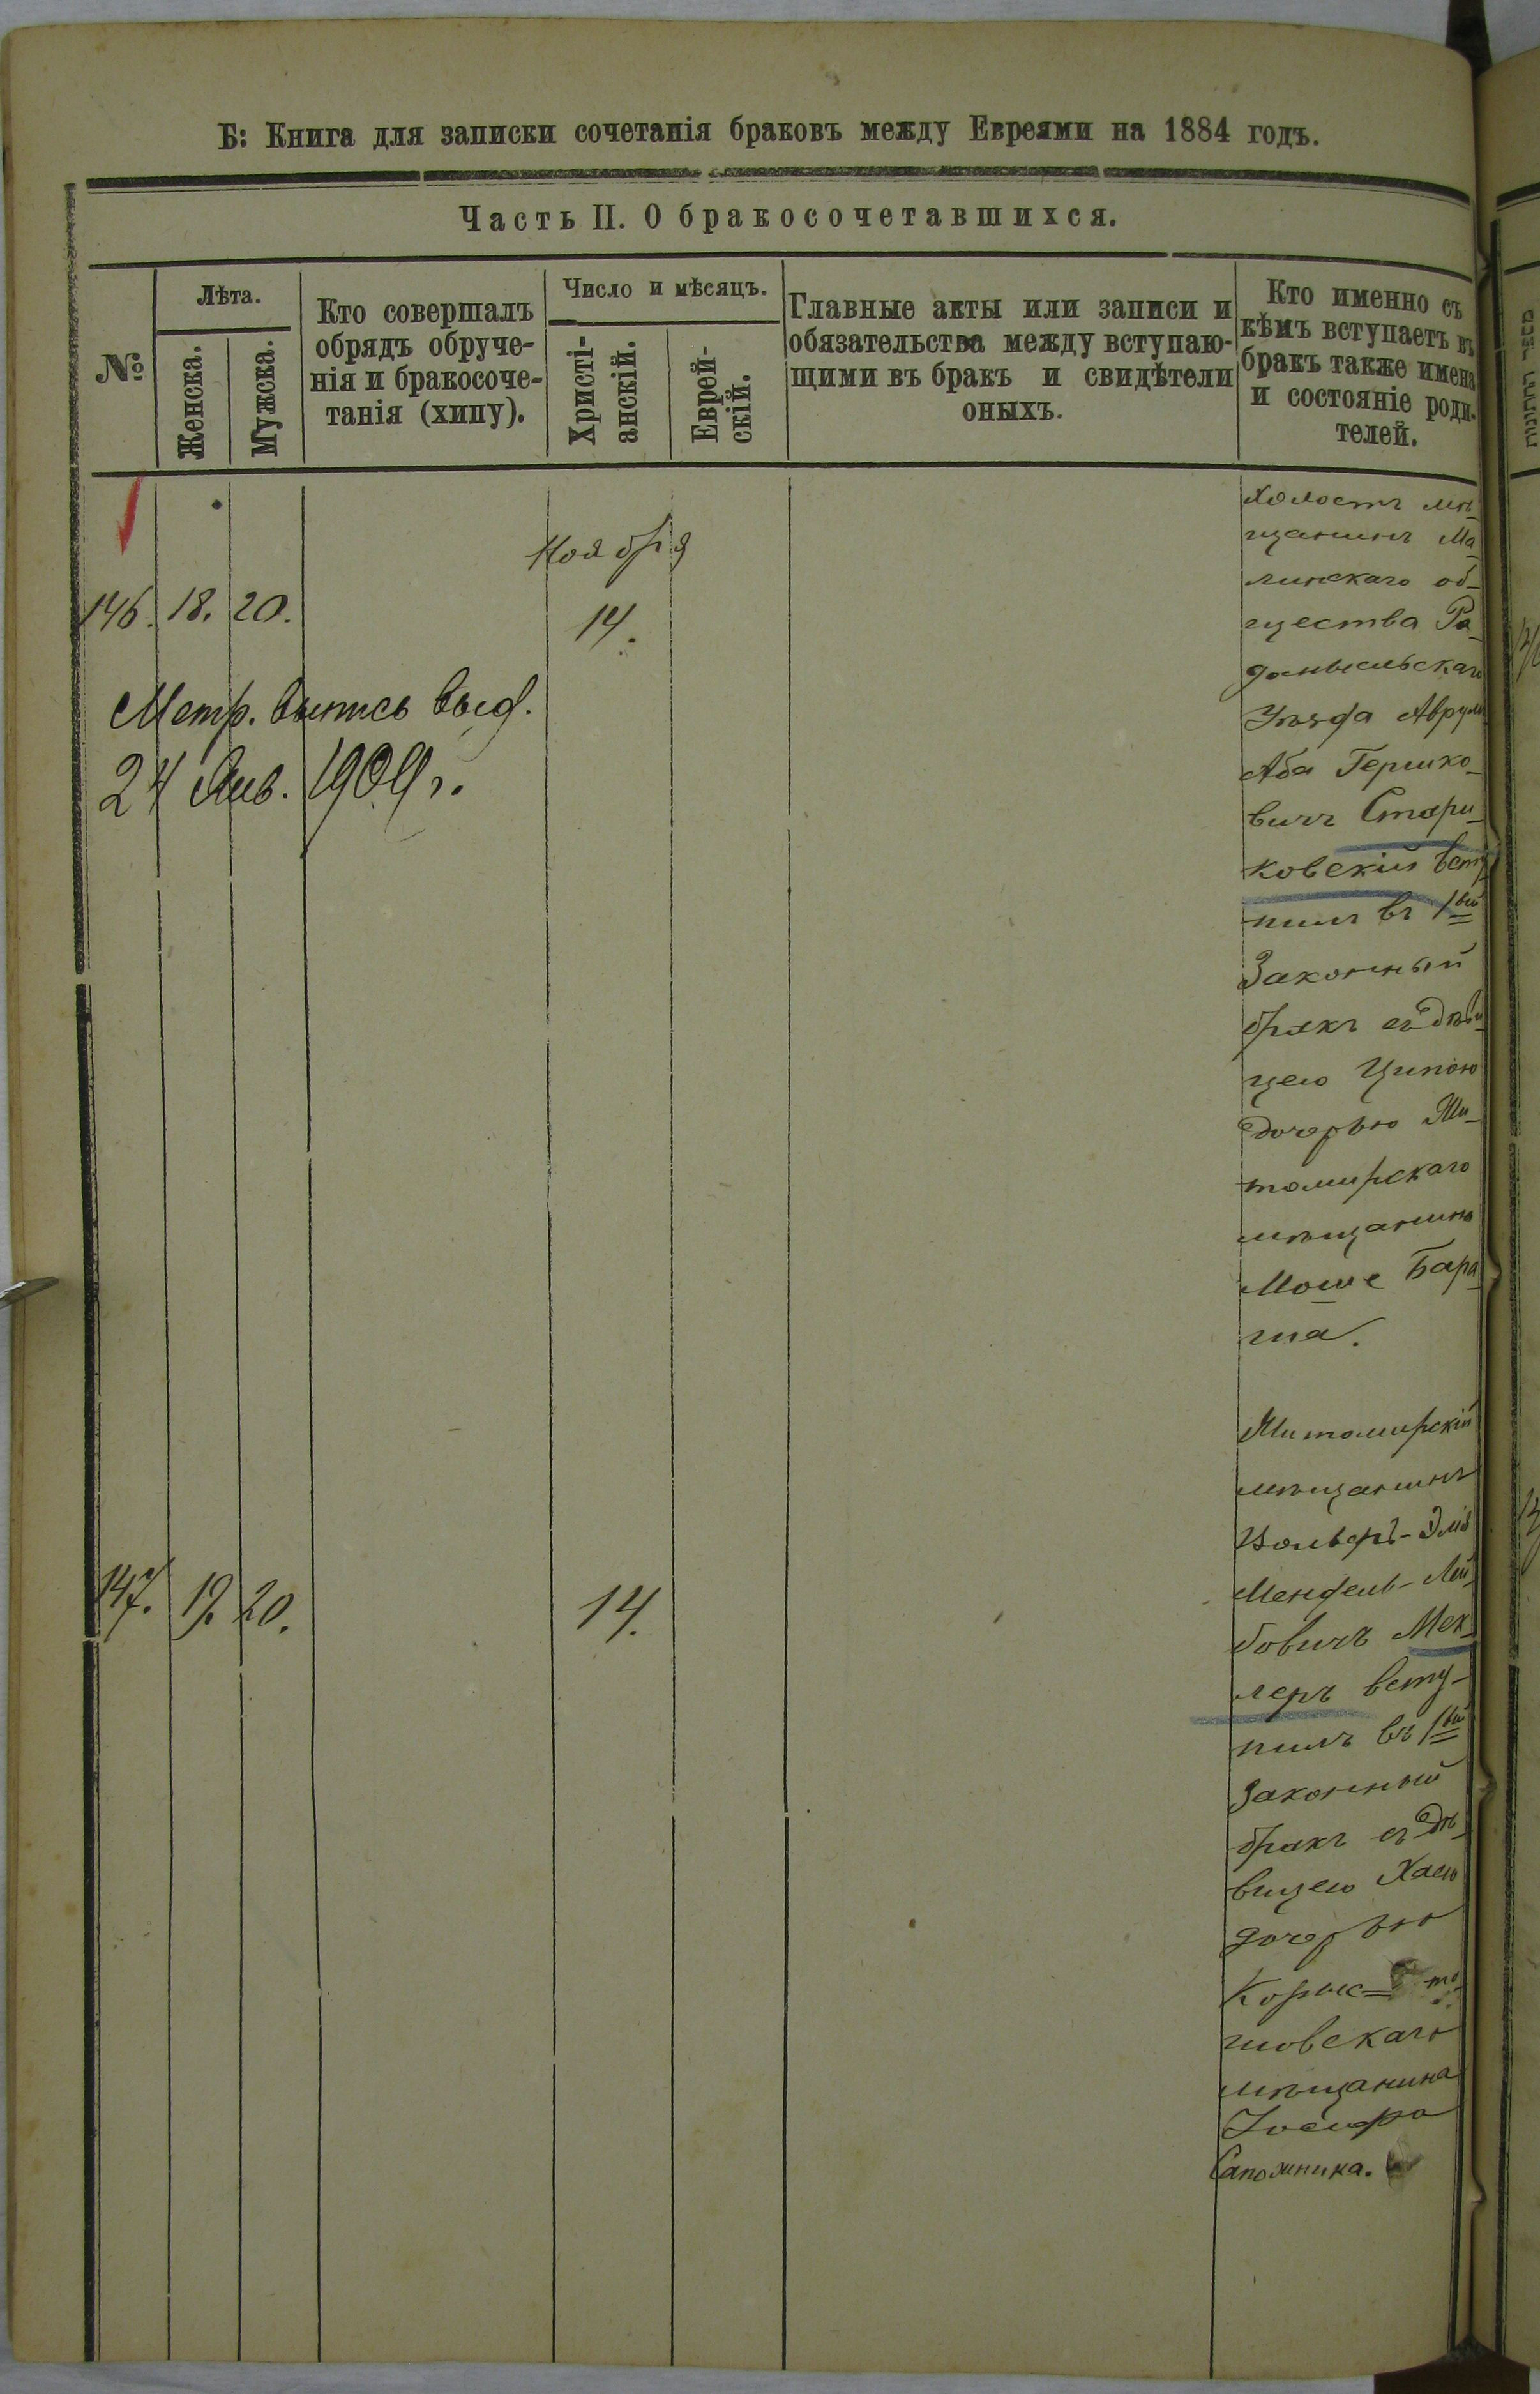 Б: Книга для записки сочетанія браковъ между Евреями на 1884 годъ.
Часть II. О бракосочетавшихся.
№
Лѣта.
Женска.
Мужска.
Кто совершалъ
обрядъ обруче-
нія и бракосоче-
танія (хипу).
Число и мѣсяцъ.
Христі-
анскій.
Еврей-
скій.
Главные акты или записи и
обязательства между вступаю-
щими въ бракъ и свидѣтели
оныхъ.
Кто именно съ
кѣмъ вступаетъ въ
бракъ также имена
и состояніе роди-
телей.
146. 18. 20.
Ноября
14.
Метр. выпись выд.
24 Янв. 1909 г.
Холостъ мѣ-
щанинъ Ма-
линскаго об-
щества Ра-
домысльскаго
Уѣзда Аврумъ
Аба Гершко-
вичъ Стари-
ковскій всту
пилъ въ 1вый
Законный
бракъ съ дѣви
цею Ципою
дочерью Жи-
томирскаго
мѣщанина
Моше Бара-
ша.
147. 19. 20.
14.
Житомирскій
мѣщанинъ
Вольфъ-
Мендель-Лей-
бовичъ Мек-
леръ всту-
пилъ въ 1вый
Законный
бракъ съ дѣ-
вицею Хаею
дочерью
Корыс= то
шовскаго
мѣщанина
Іосифа
Сапожника.